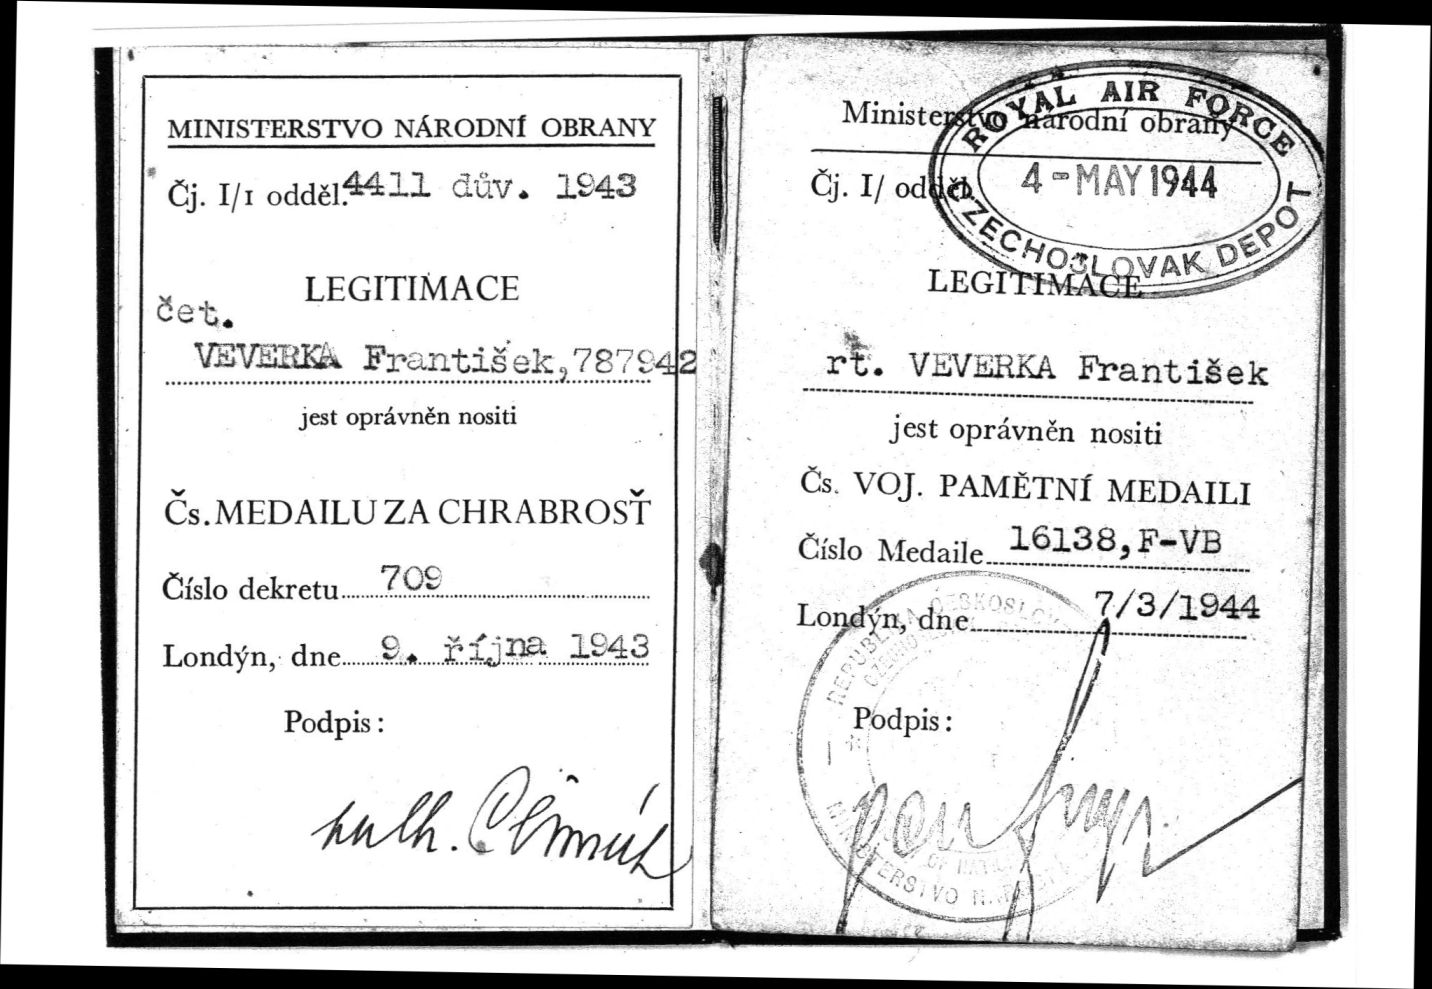 MINISTERSTVO NÁRODNÍ OBRANY
Čj. I/1 odděl. 4411 dův. 1943
LEGITIMACE
čet.
VEVERKA František, 787942
jest oprávněn nositi
Čs. MEDAILU ZA CHRABROSŤ
Číslo dekretu 709
Londýn, dne 9. října 1943
Podpis:
Ministerstvo národní obrany
Čj. I/ odděl.
ROYAL AIR FORCE
4-MAY 1944
CZECHOSLOVAK DEPOT
LEGITIMACE
rt. VEVERKA František
jest oprávněn nositi
Čs. VOJ. PAMĚTNÍ MEDAILI
Číslo Medaile 16138, F-VB
Londýn, dne 7/3/1944
REPUBLIKA ČESKOSLOV
Podpis:
MINISTERSTVO